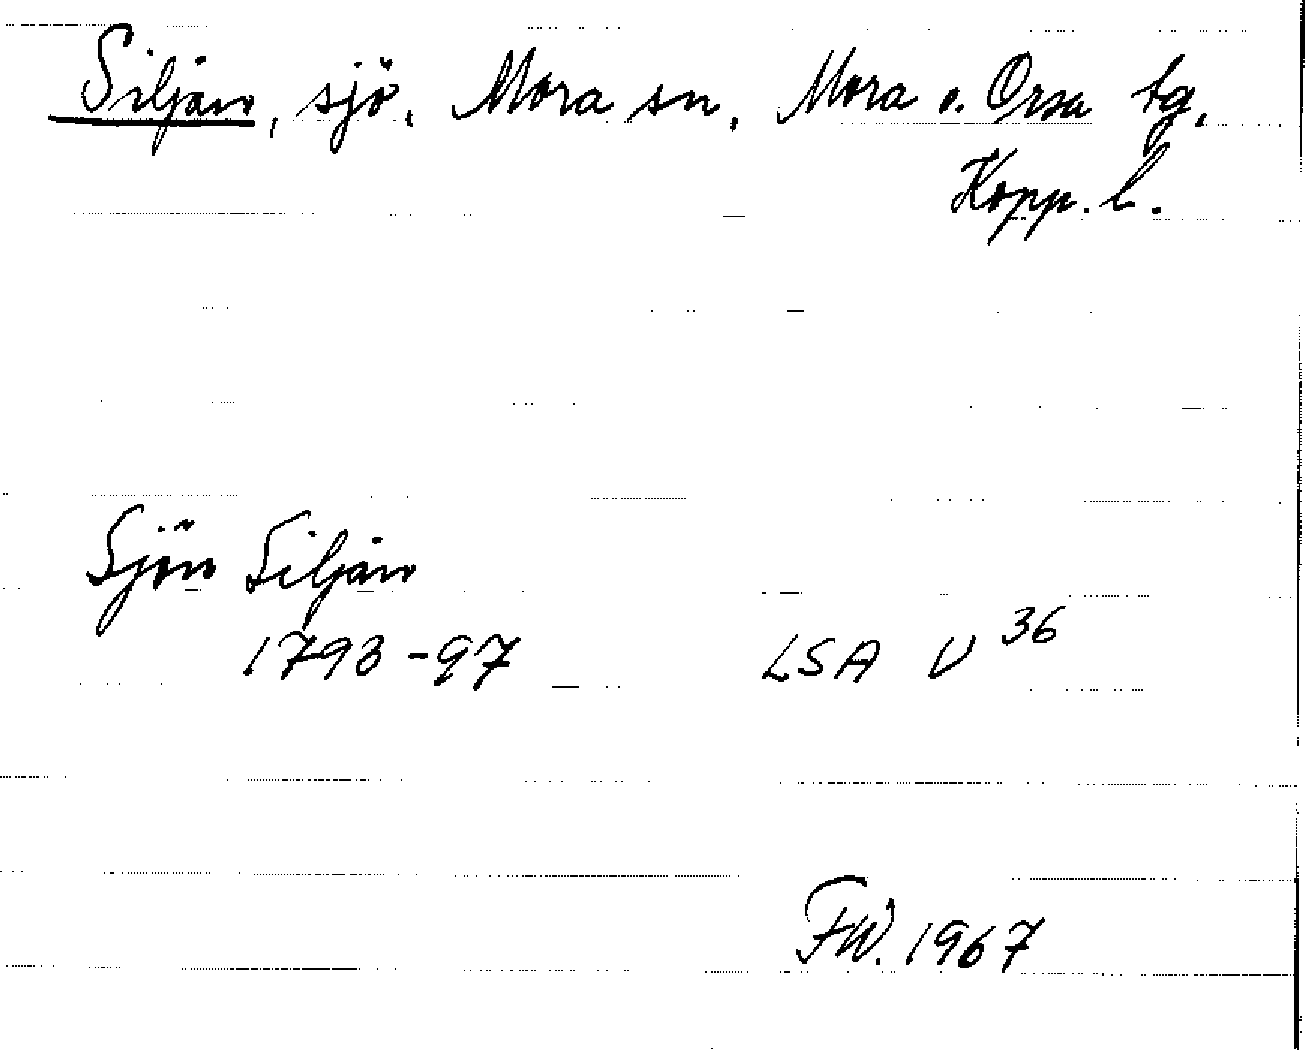 Siljan, sjö, Mora sn, Mora o. Orsa tg,
Kopp. l.
Sjön Siljan
1793-97 LSA U 36
FW. 1967